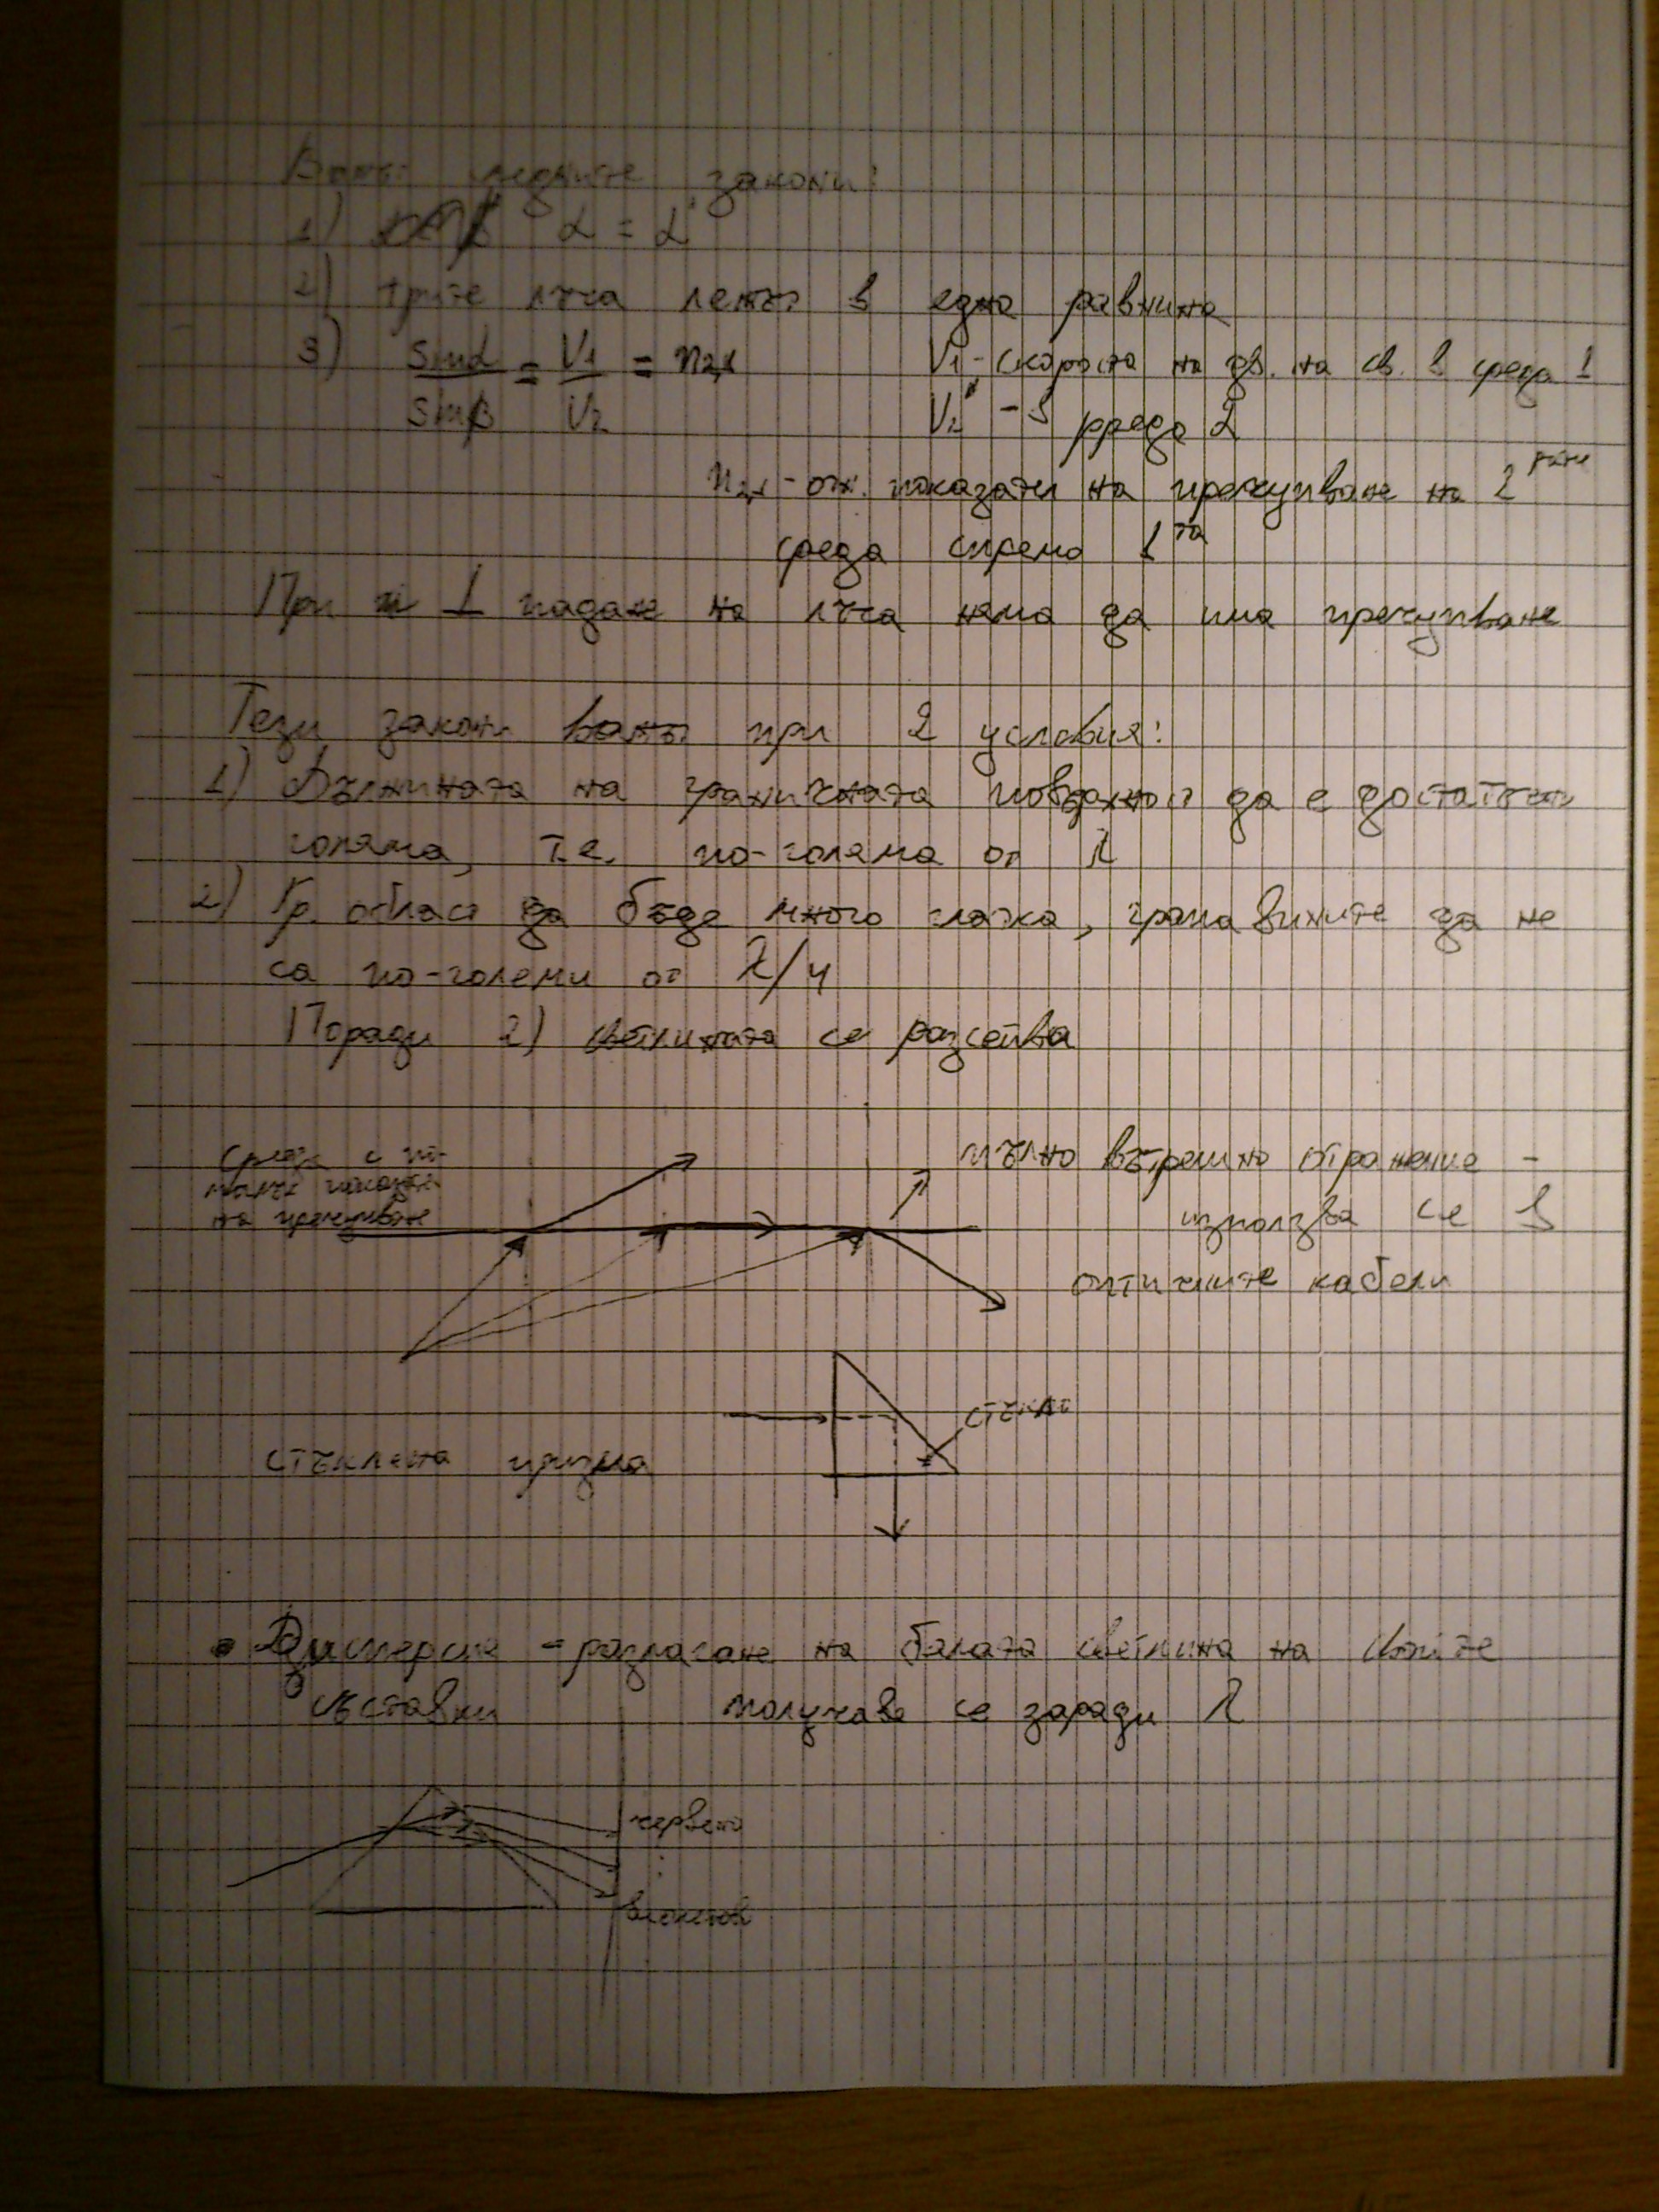 Важат следните закони:
1) α = α'
2) трите лъча лежат в една равнина
3) sinα/sinβ = V1/V2 = n2,1 V1 - скоростта на зв. на св. в среда 1
V2 - в среда 2
n2,1 - от. показател на пречупване на 2рата
среда спрямо 1та
При ⊥ падане на лъча няма да има пречупване
Тези закони важат при 2 условия:
1) Дължината на граничната повърхност да е достатъчно
голяма, т.е. по-голяма от λ
2) Гр. област да бъде много гладка, грапавините да не
са по-големи от λ/4
Поради 2) светлината се разсейва
среда с по-
малък показател
на пречупване
пълно вътрешно отражение -
използва се в
оптичните кабели
стъкло
стъклена призма
• Дисперсия - разлагане на бялата светлина на своите
съставки получава се заради λ
червено
:
виолетов